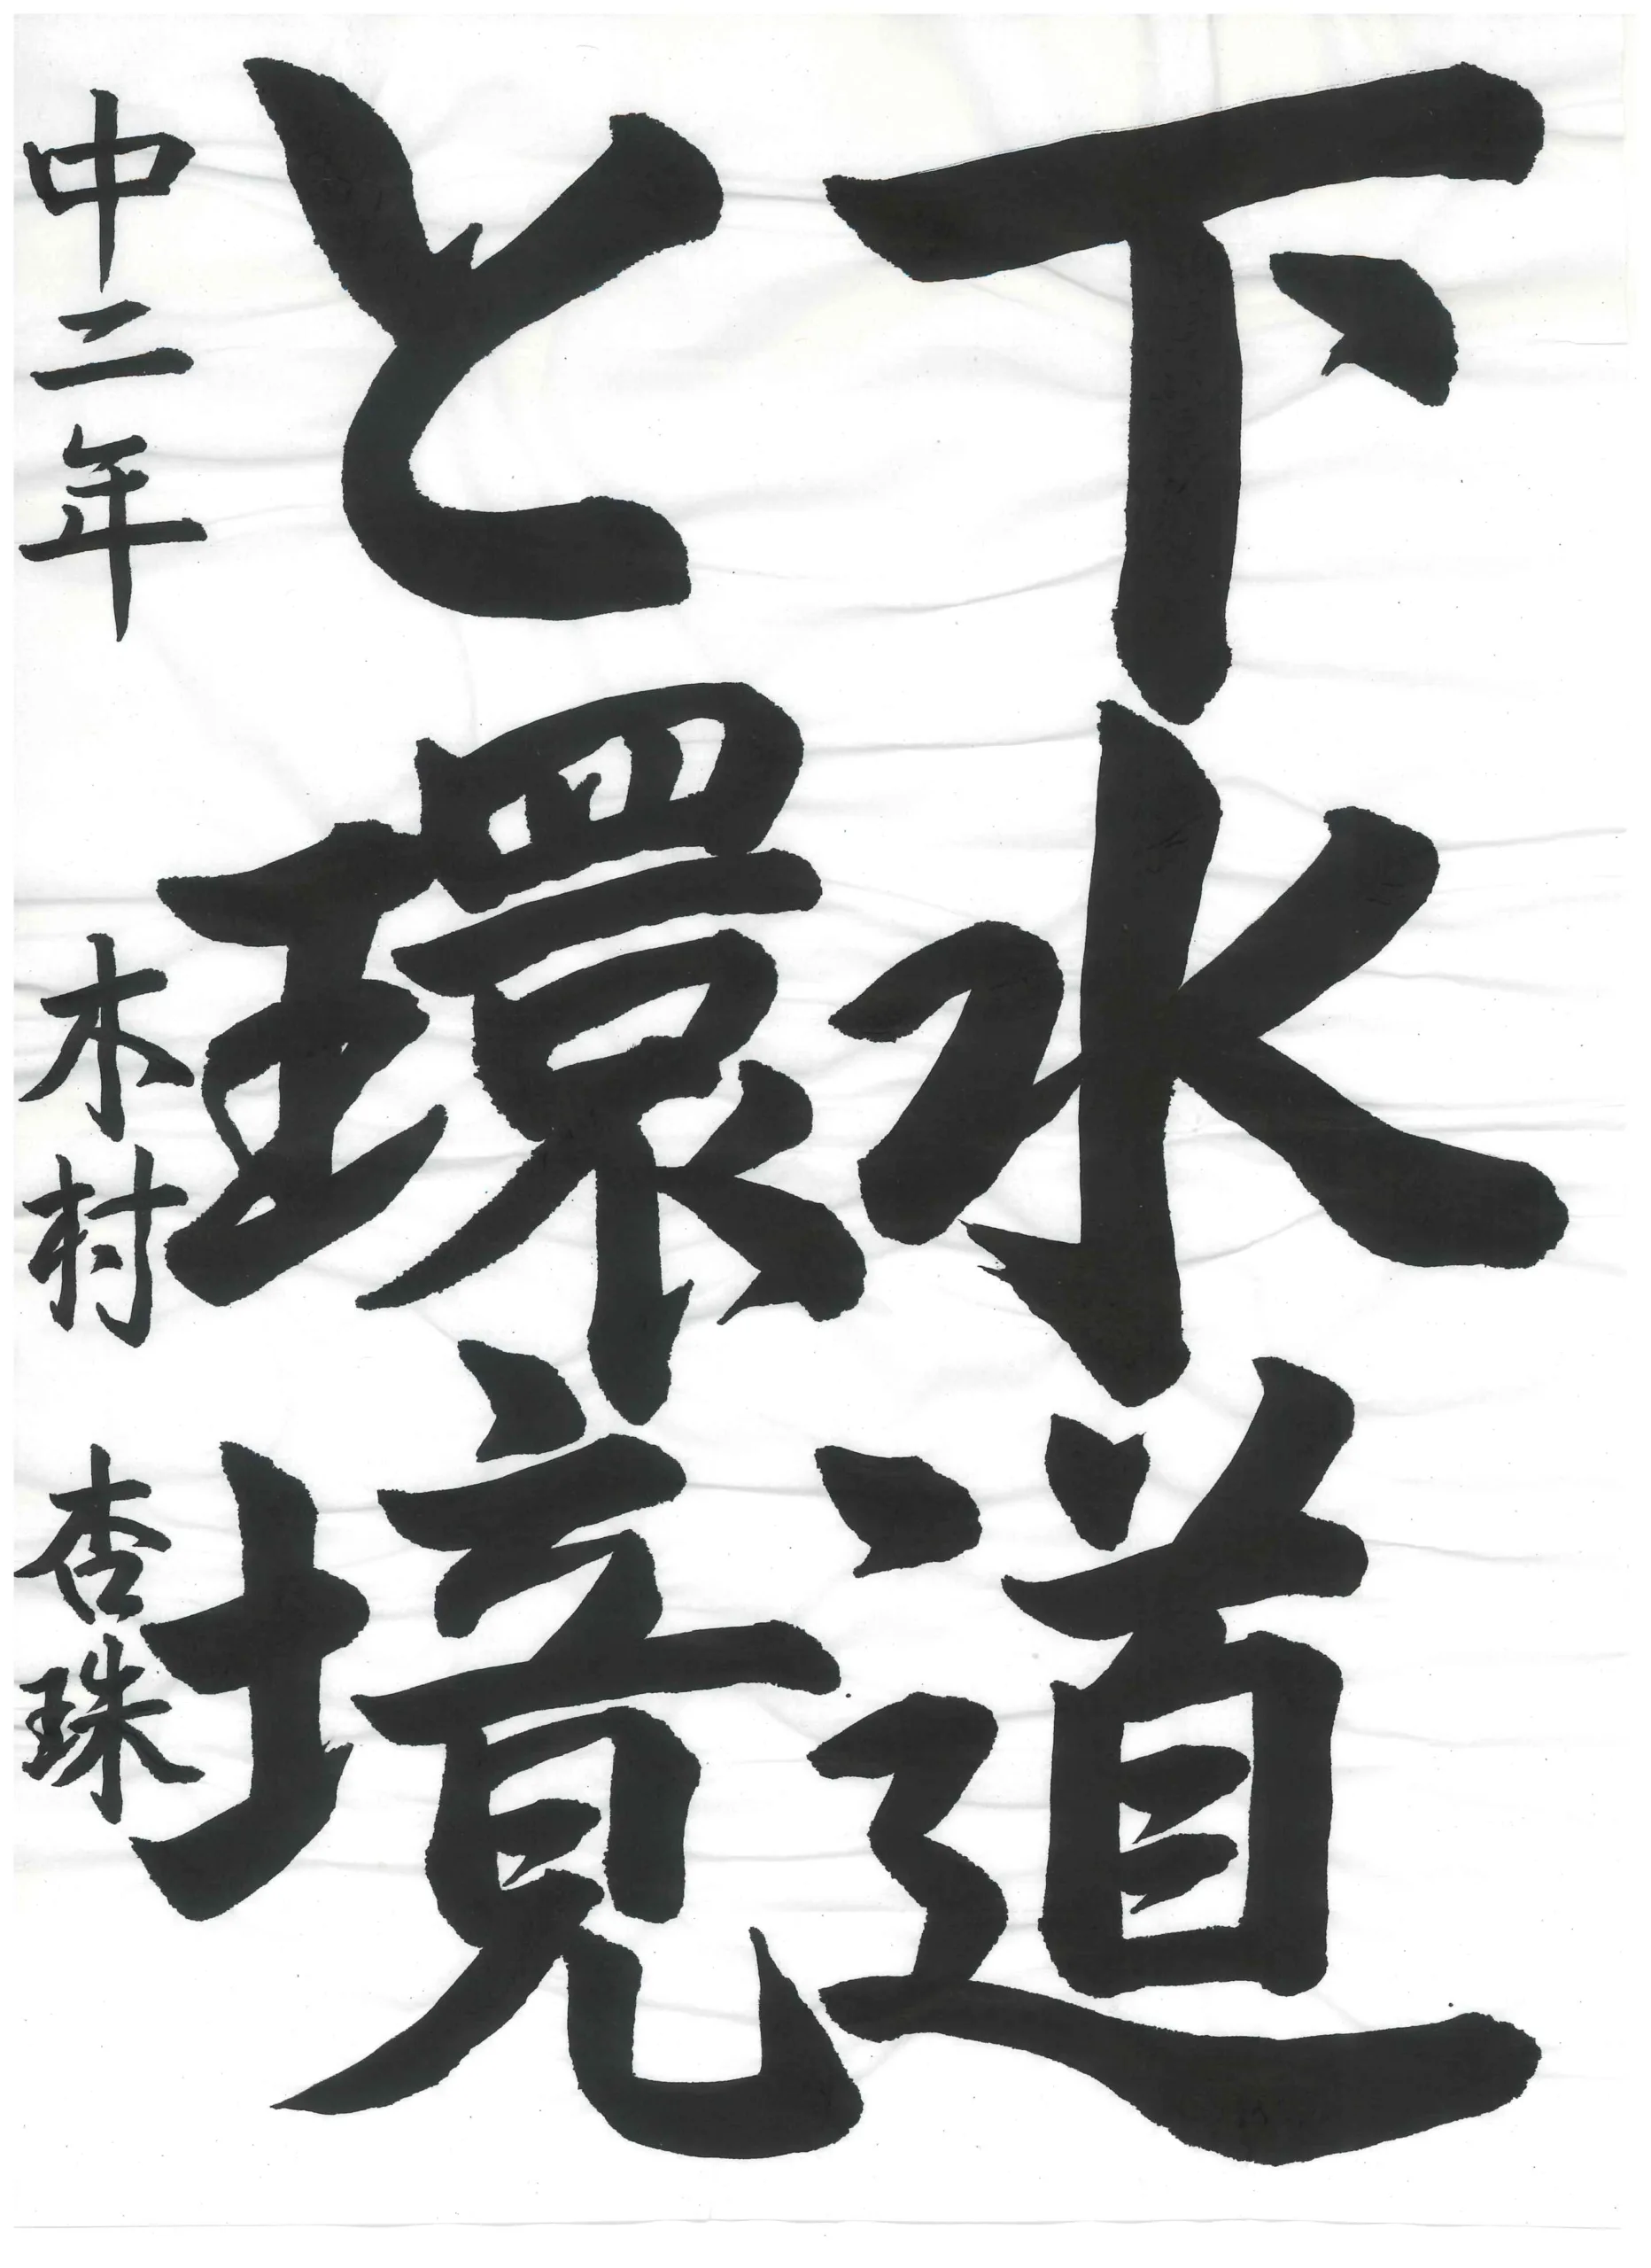 下水道
と環境
中二年 木村 杏珠